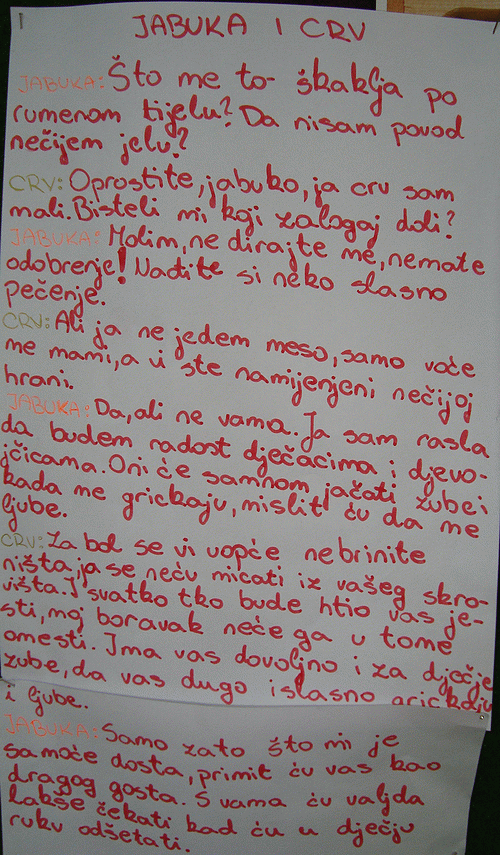 JABUKA I CRV
JABUKA: Što me to škaklja po
rumenom tijelu? Da nisam povod
nečijem jelu?
CRV: Oprostite, jabuko, ja crv sam
mali. Bisteli mi koji zalogaj dali?
JABUKA: Molim, ne dirajte me, nemate
odobrenje! Nađite si neko slasno
pečenje.
CRV: Ali ja ne jedem meso, samo voće
me mami, a vi ste namijenjeni nečijoj
hrani.
JABUKA: Da, ali ne vama. Ja sam rasla
da budem radost dječacima i djevo-
jčicama. Oni će samnom jačati zube i
kada me grickaju, mislit ću da me
ljube.
CRV: Za bol se vi uopće nebrinite
ništa, ja se neću micati iz vašeg skro-
višta. I svatko tko bude htio vas je-
sti, moj boravak neće ga u tome
omesti. Ima vas dovoljno i za dječje
zube, da vas dugo i slasno grickaju
i ljube.
JABUKA: Samo zato što mi je
samoće dosta, primit ću vas kao
dragog gosta. S vama ću valjda
lakše čekati kad ću u dječju
ruku odšetati.